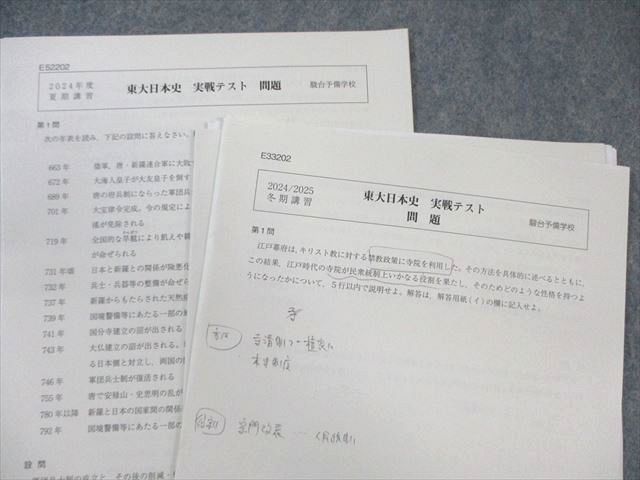 E52202
2024年度
夏期講習
東大日本史 実戦テスト 問題
駿台予備学校
第1問
次の年表を読み、下記の設問に答えなさい。
663年 倭軍、唐・新羅連合軍に大敗
672年 大海人皇子が大友皇子を倒す
689年 唐の府兵制にならった軍団兵
701年 大宝律令完成。令の規定によ
逃が免除される
719年 全国的な旱魃により飢えや
が命ぜられる
731年頃 日本と新羅との関係が険悪化
732年 兵士・兵器等の整備が命ぜら
737年 新羅からもたらされた天然痘
739年 国境警備等にあたる一部の兵
741年 国分寺建立の詔が出される
743年 大仏建立の詔が出される。
る日本側と対立し、両国の
746年 軍団兵士制が復活される
755年 唐で安禄山・史思明の乱が
780年以降 新羅と日本の国家間の関係
792年 国境警備等にあたる一部の
設問
軍団兵士制の成立と、その後の削減・
E33202
2024/2025
冬期講習
東大日本史 実戦テスト
問題
駿台予備学校
第1問
江戸幕府は、キリスト教に対する禁教政策に寺院を利用した。その方法を具体的に述べるとともに、
この結果、江戸時代の寺院が民衆統制上いかなる役割を果たし、そのためどのような性格を持つよ
うになったかについて、5行以内で説明せよ。解答は、解答用紙(イ)の欄に記入せよ。
寺
方法 寺請制つ→檀家に
本末制度
役割 宗門改表